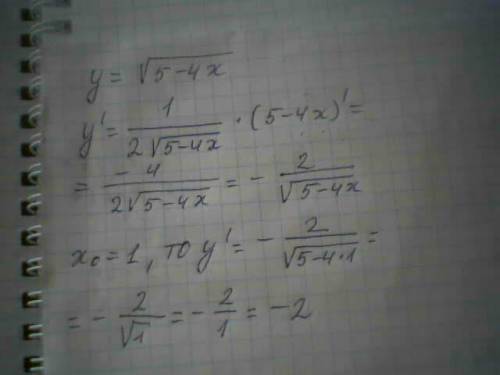 y = √(5-4x)
y' = 1/(2√(5-4x)) · (5-4x)' =
= -4/(2√(5-4x)) = - 2/√(5-4x)
x₀ = 1, то y' = - 2/√(5-4·1) =
= - 2/√1 = - 2/1 = -2